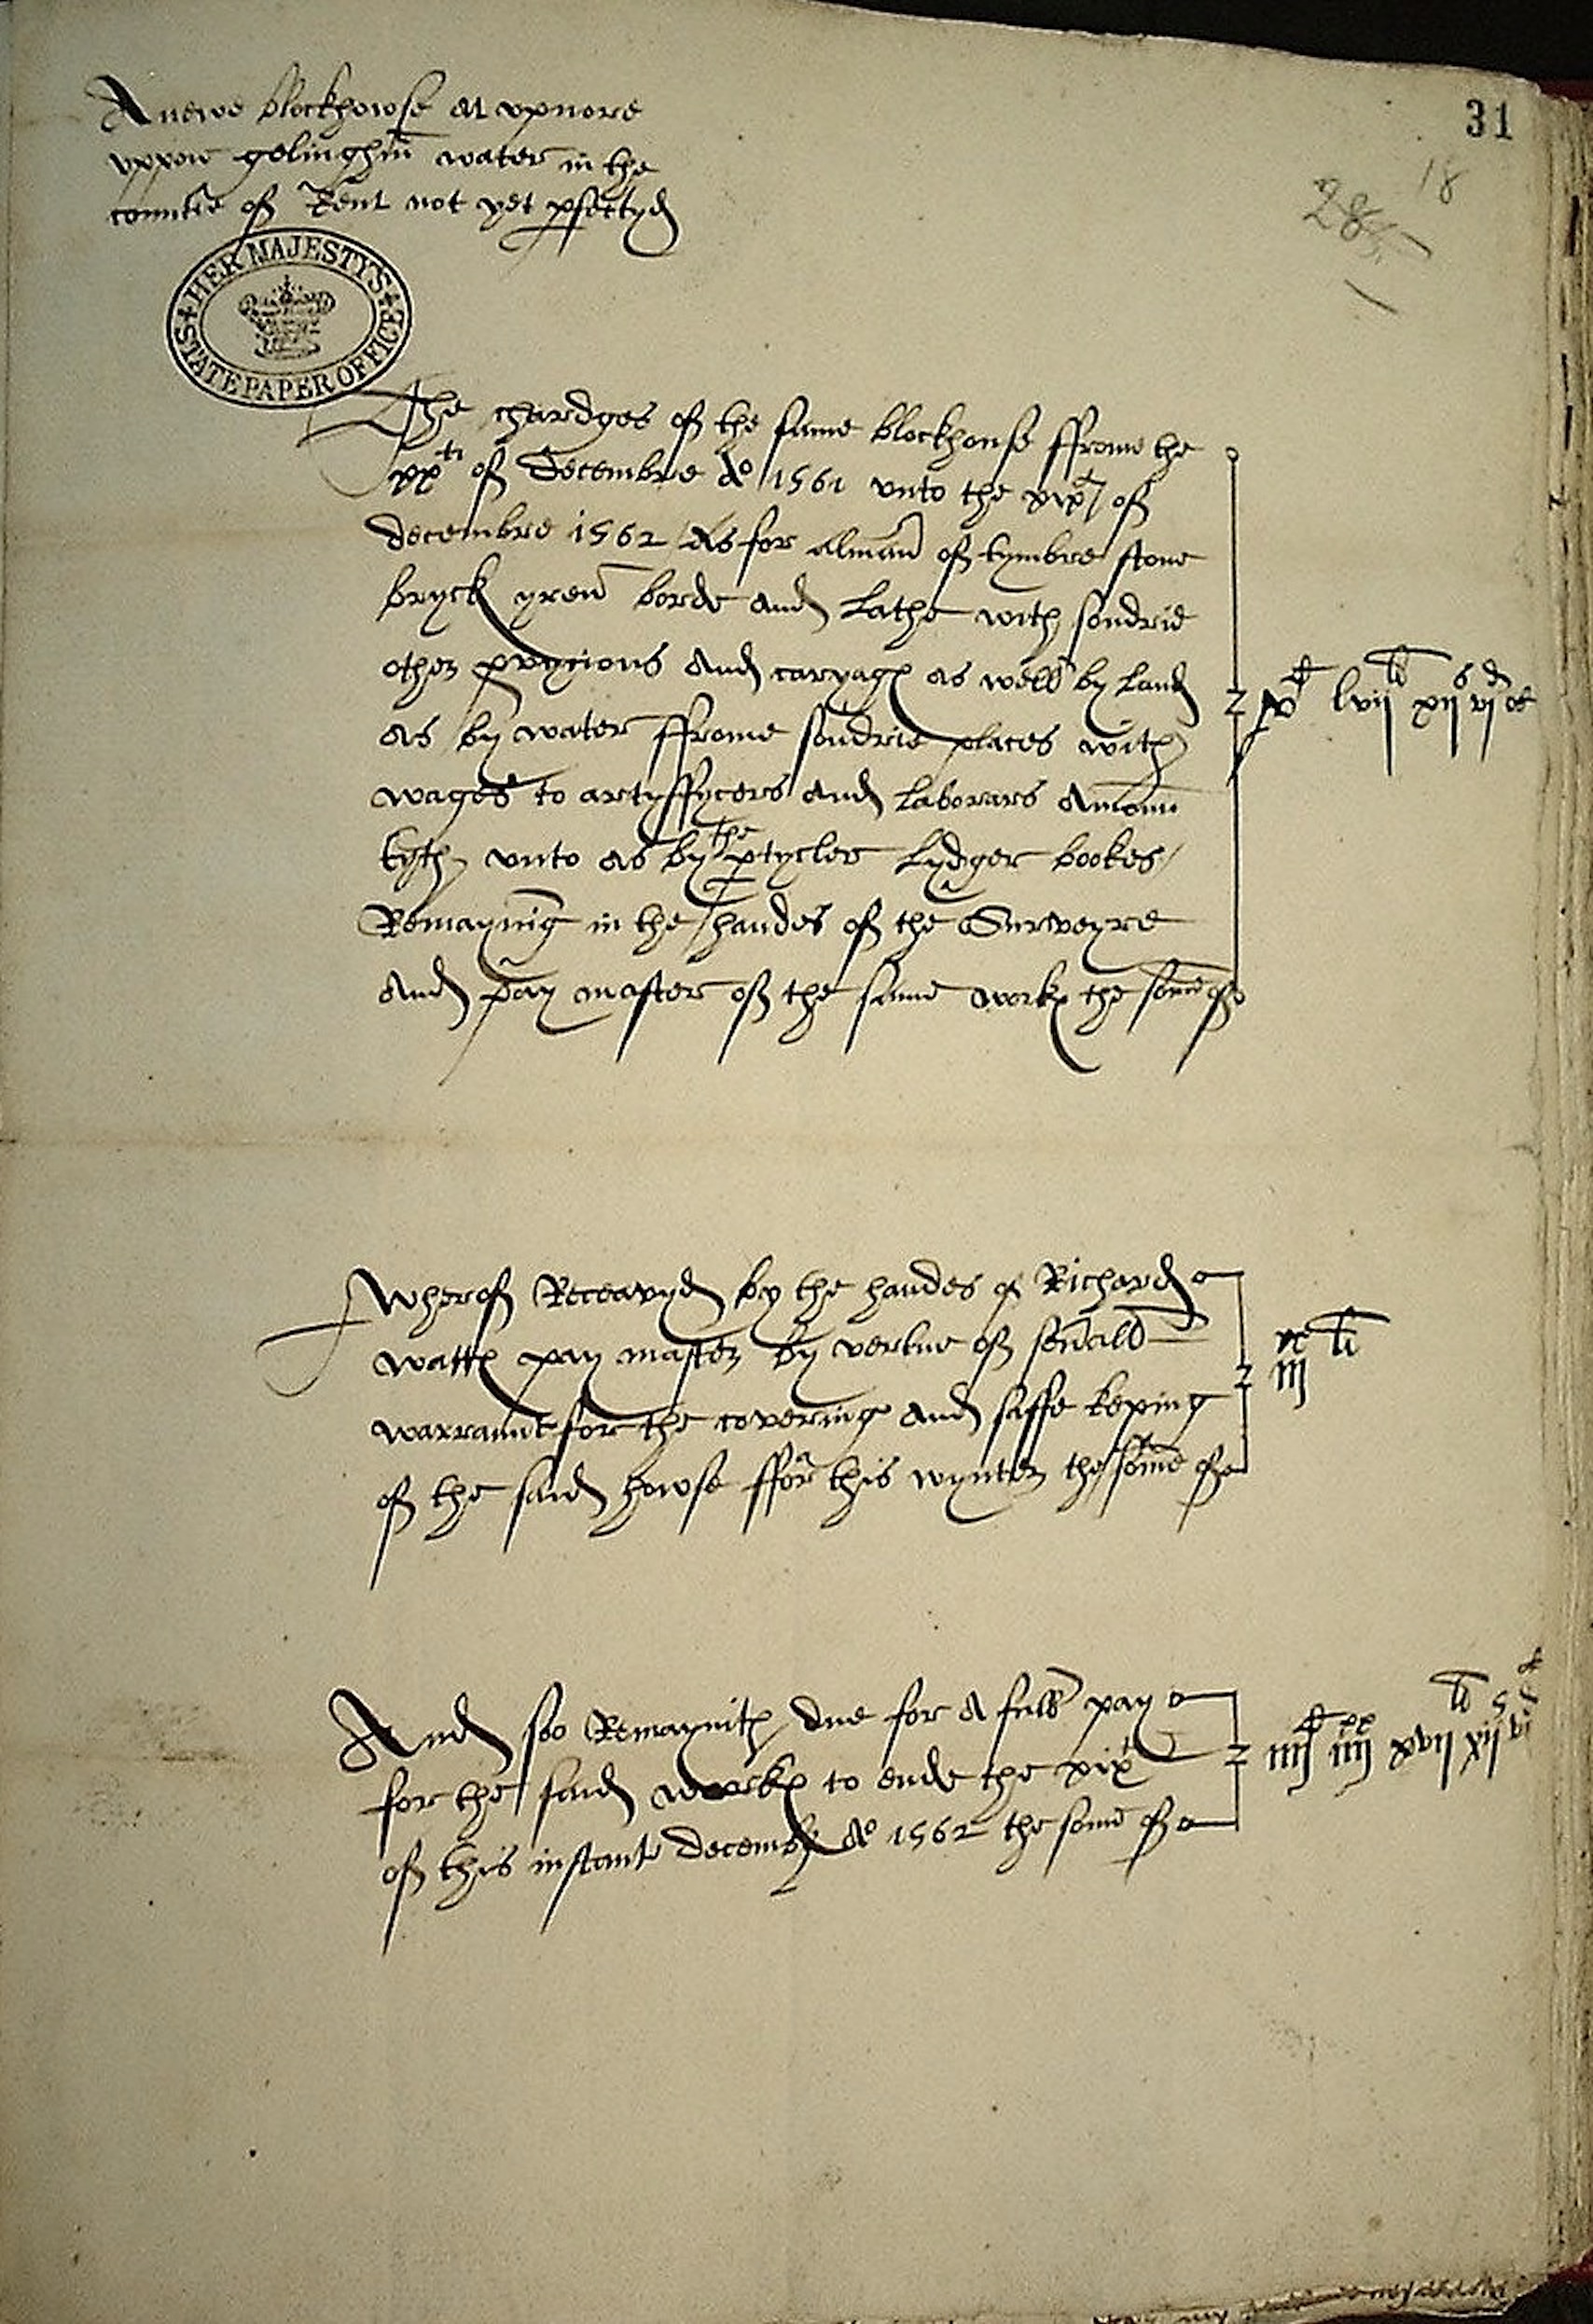 A newe blockhowse at upnore
uppon gelinghm water in the
countie of Kent not yet pfectyd
31
18
28
HER MAJESTY'S
STATE PAPER OFFICE
The chardges of the same blockhouse ffrome the
xxti of Decembre Ao 1561 unto the xixt of
decembre 1562 As for almanr of tymbre stone
bryck yren borde and Lathe with sondrie
other pvycions and caryage as well by Land
as by water ffrome sondrie places with
wages to artyffycers and Laborars Amoun
tyth unto as by the ptycler Lydger bookes
Remaynīg in the handes of the Surveyre
And pay master of the same workes the some of
m lvii li xii s vi d ob
Wherof Receavyd by the handes of Richard
wattes pay master by vertue of sevall
warraunt for the covering and saffe keping
of the said howse ffor this wynter the some of
vc iii li
And soo Remaynith due for a full pay
for the said workes to ende the xixt
of this instant decembr Ao 1562 the some of
iiiic iiiixx xvii li xii s vi d